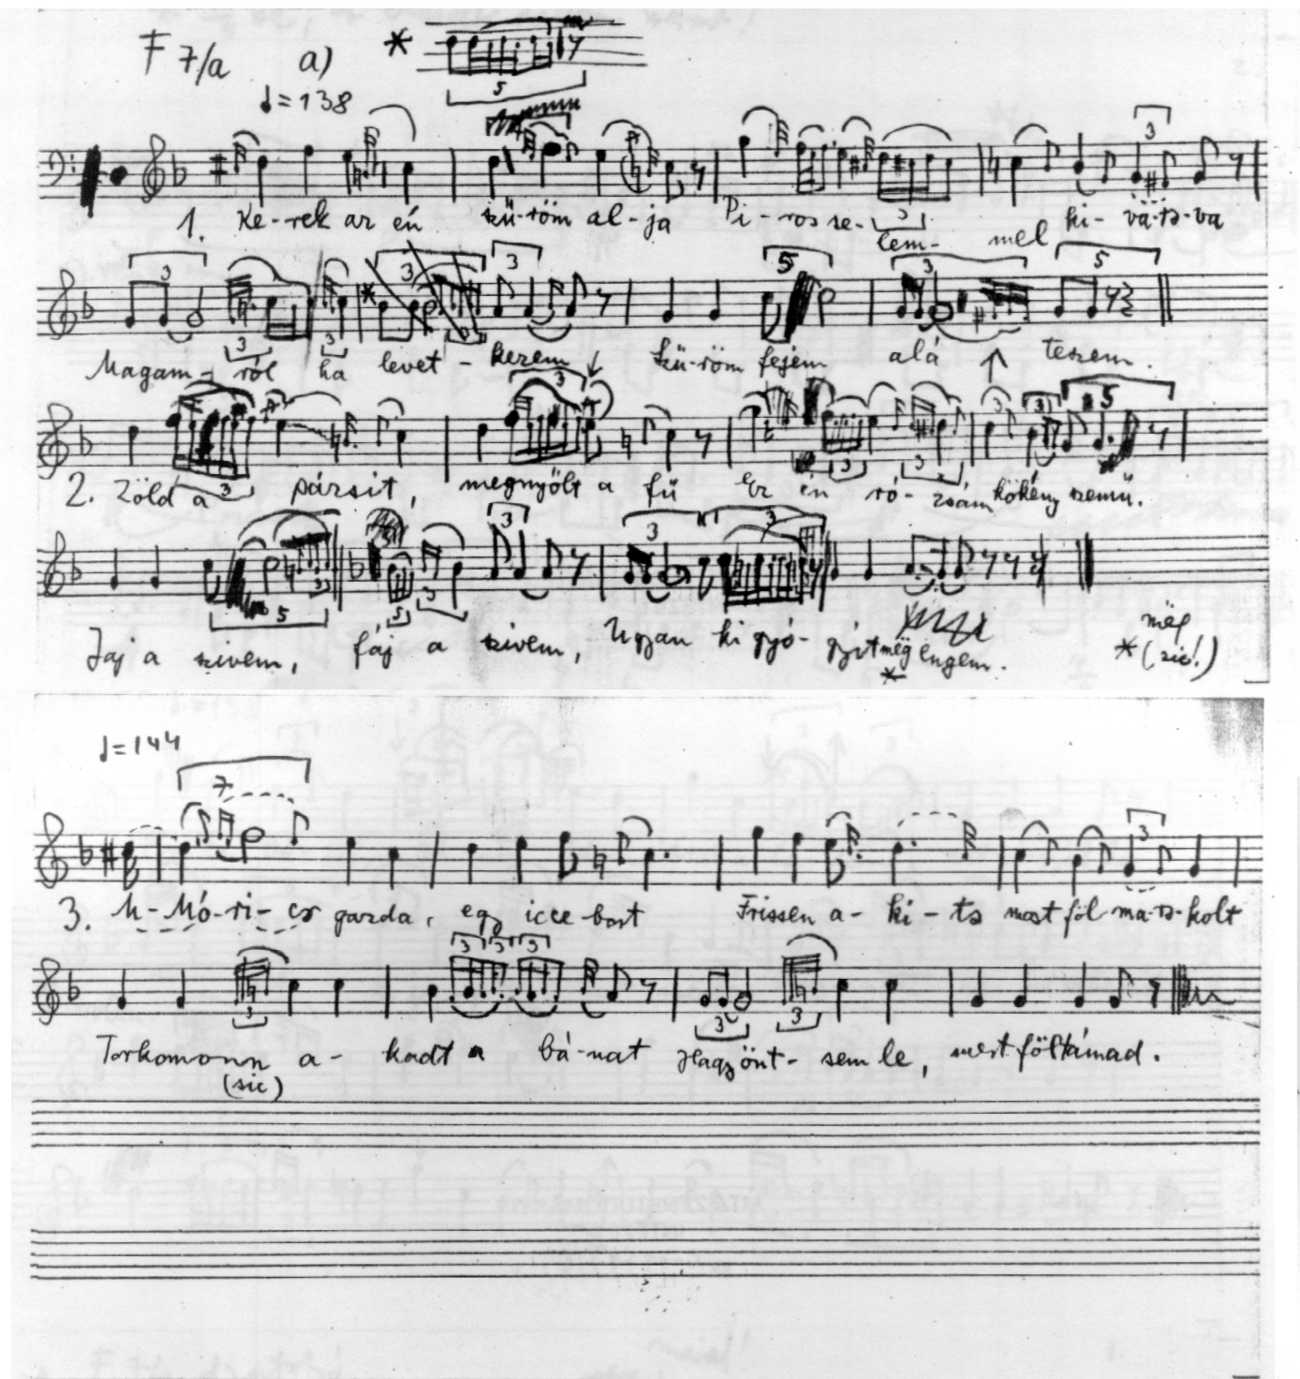 F 7/a a) *
5
♩=138
3
1. Ke-rek az én szü-röm al-ja Pi-ros se-lem-mel ki-va-ts-va
3 3 5 3 5
Magam-ról ha levet-kezem Szü-röm fejem alá teszem.
3 3
2. Zöld a pázsit, megnyölt a fü Ez én ró-zsám kökény szemü.
3 3 5
Jaj a szivem, fáj a szivem, Ugyan ki gyó-gyit még engem.
5 * még
*(sic!)
♩=144
7
3
3. M-Mó-ri-cz gazda, egy icce bort Frissen a-ki-ts mast föl ma-ts-kolt
3 3 3
Torkomonn a-kadt a bá-nat Hagy önt-sem le, mert föltámad.
(sic)
3 3 3